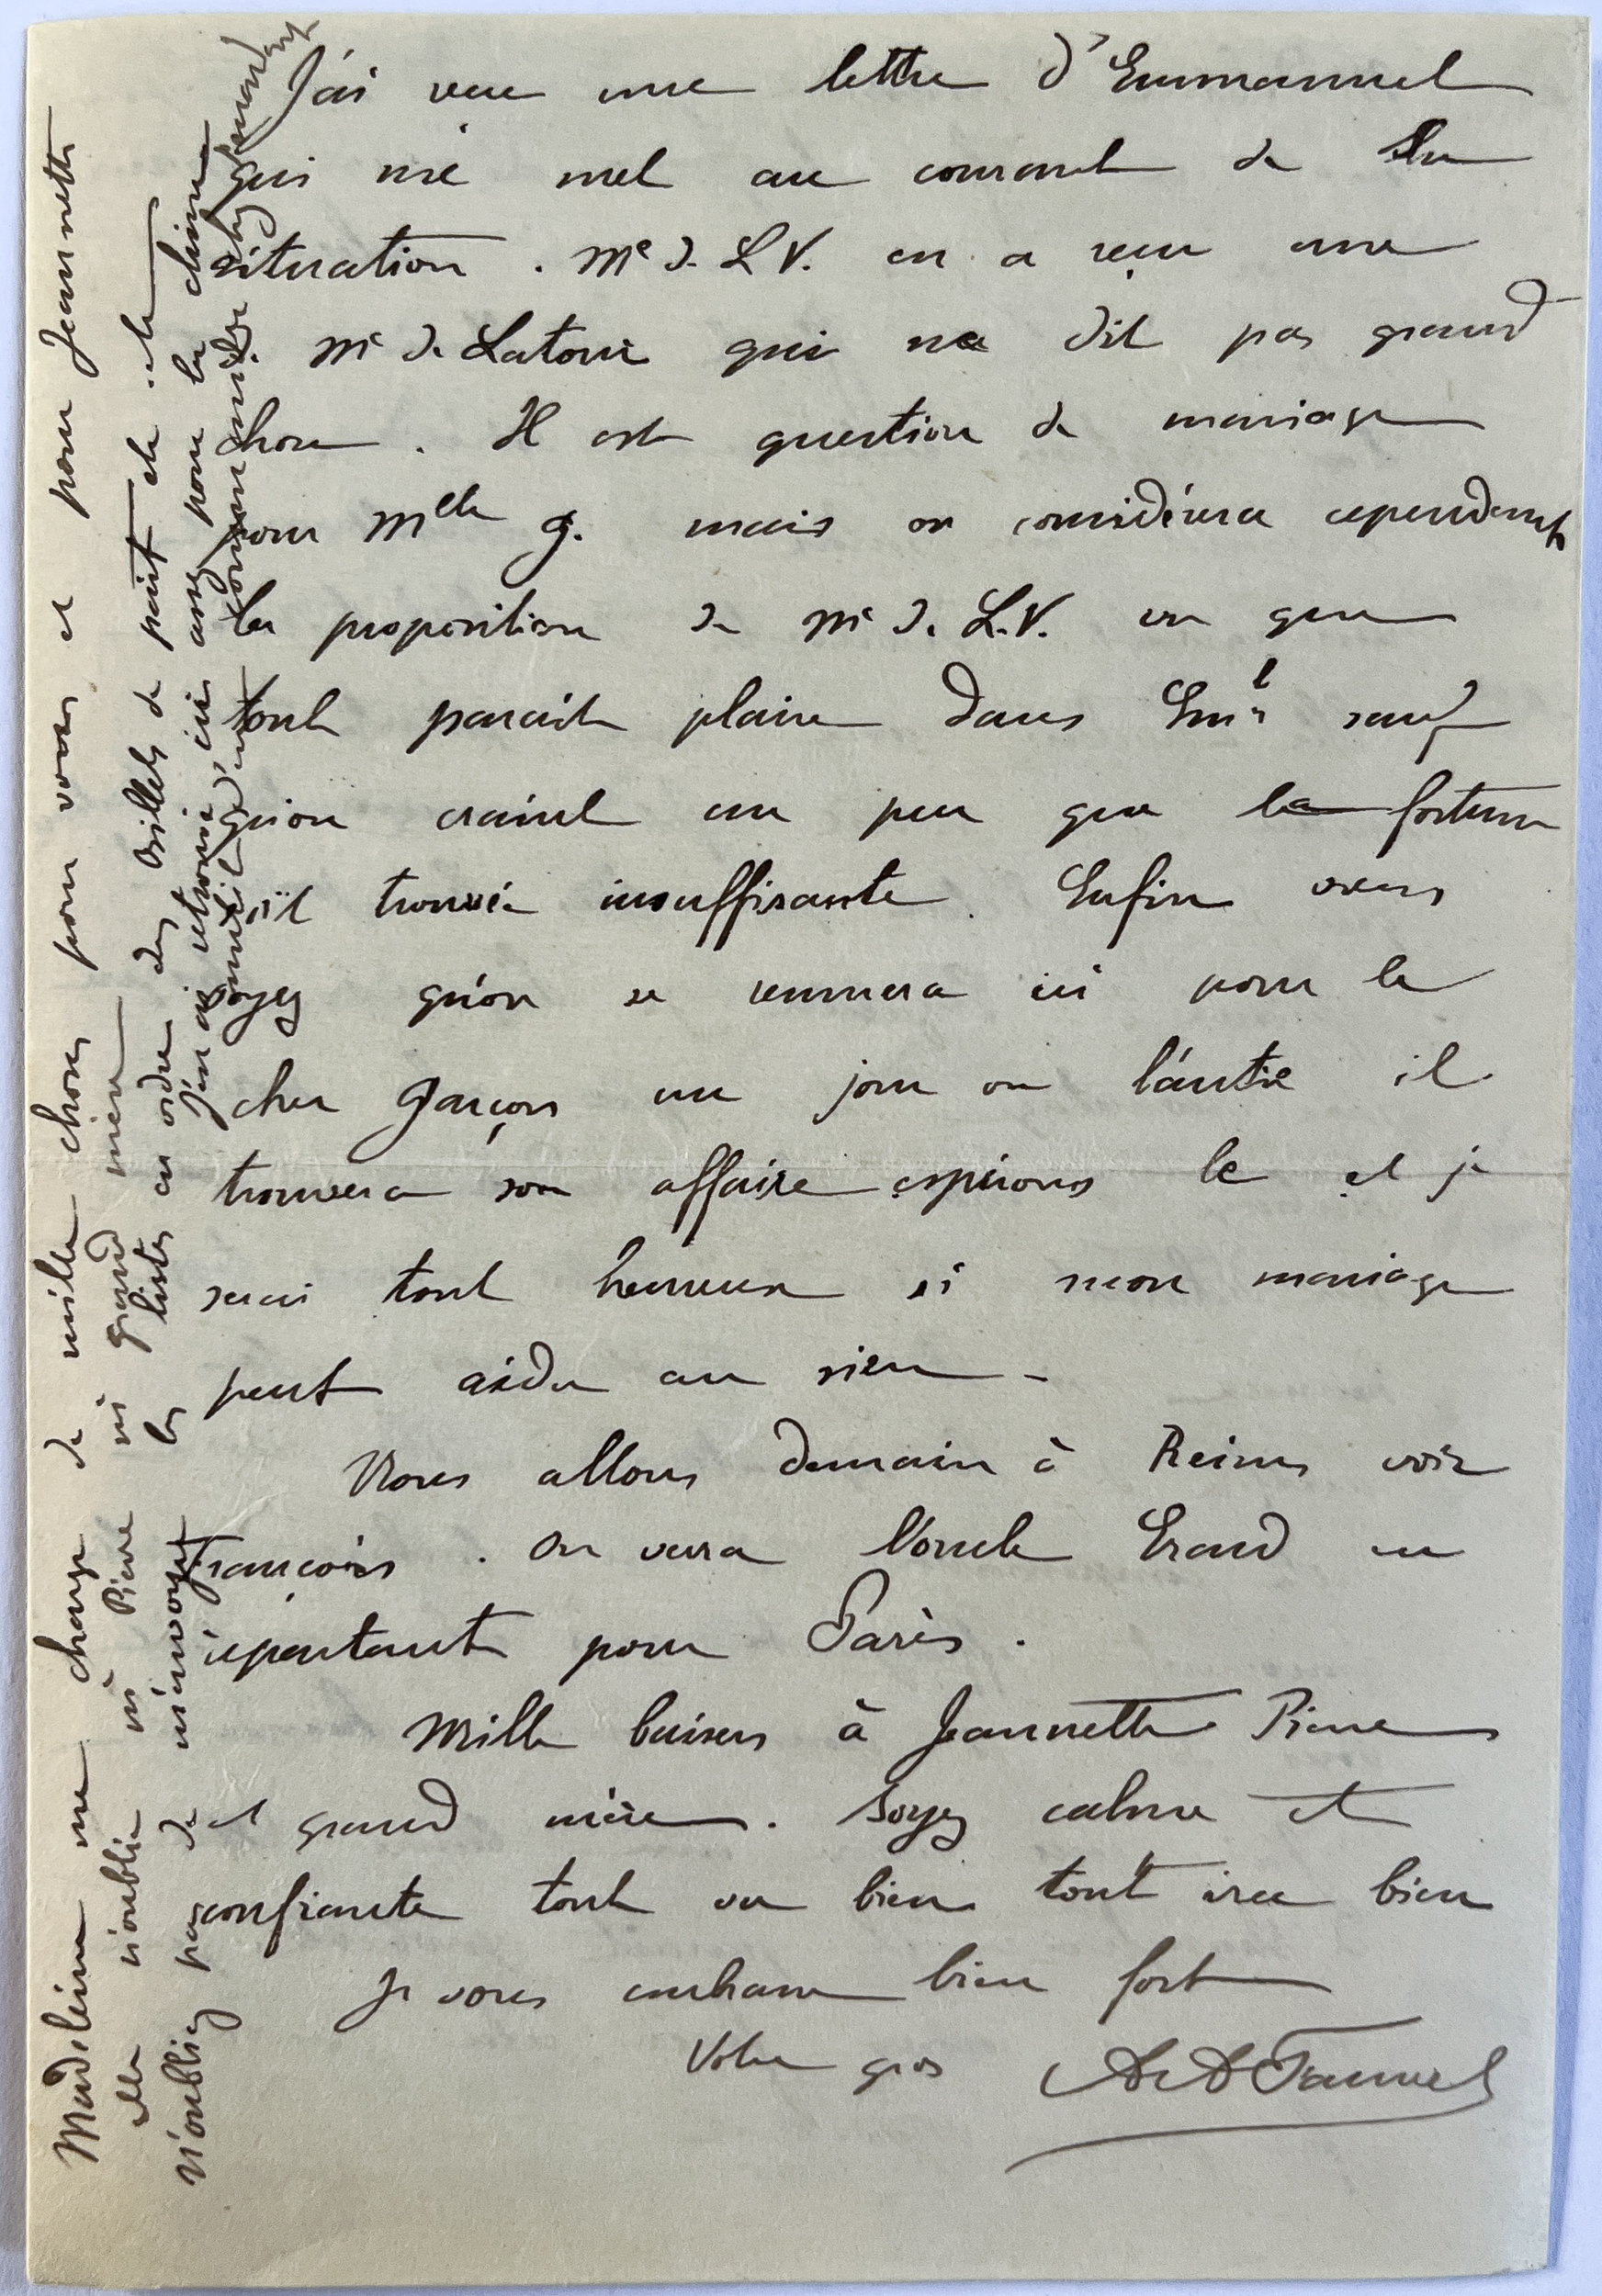 J'ai reçu une lettre d'Emmanuel
qui me met au courant de la
situation. Me d. L V. en a reçu une
Me d. Latour qui ne dit pas grand
chose. Il est question de mariage
pour Melle G. mais on considérera cependant
la proposition de Me d. L.V. en que
tout parait plaire dans Emel sauf
qu'on craint un peu que la fortune
soit trouvée insuffisante. Enfin vous
voyez qu'on se remuera ici pour le
cher garçon un jour ou l'autre il
trouvera son affaire espérons le et je
serai tout heureux si mon mariage
peut aider au sien -
Nous allons demain à Reims voir
François. On verra l'oncle Erard en
repartant pour Paris.
Mille baisers à Jeannette Pierre
et grand mère. Soyez calme et
confiante tout va bien tout ira bien
Je vous embrasse bien fort
Votre gros
Madeleine me charge de mille choses pour vous et pour Jeannette
elle n'oublie ni Pierre ni grand mère
N'oubliez pas de m'envoyer les listes en ordre des billets de part etc etc
J'en ai retrouvé ici assez pour la chine